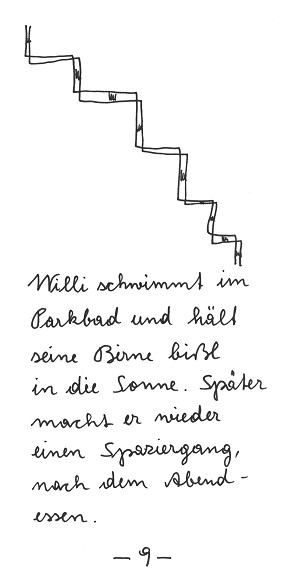 Willi schwimmt im
Parkbad und hält
seine Birne bißl
in die Sonne. Später
macht er wieder
einen Spaziergang,
nach dem Abend-
essen.
— 9 —